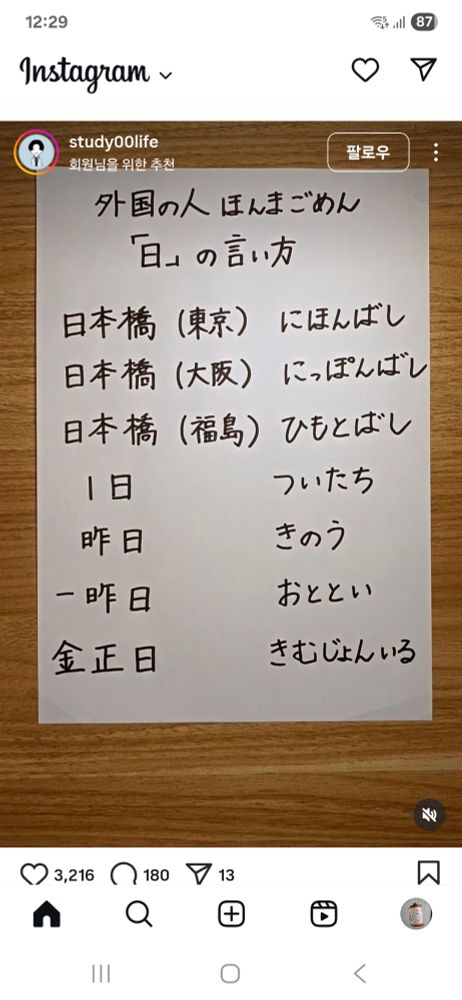 12:29
87
Instagram
study00life
회원님을 위한 추천
팔로우
外国の人 ほんまごめん
「日」の言い方
日本橋（東京） にほんばし
日本橋（大阪） にっぽんばし
日本橋（福島） ひもとばし
1日 ついたち
昨日 きのう
一昨日 おととい
金正日 きむじょんいる
3,216 180 13